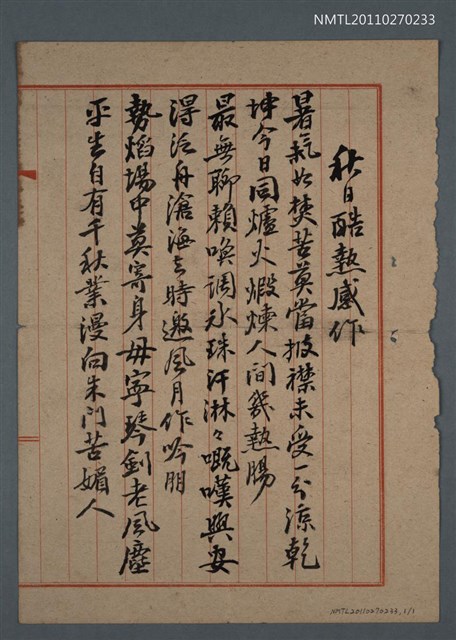 NMTL20110270233
秋日酷熱感作
暑氣如焚苦莫當披襟未受一分涼乾
坤今日同爐火煅煉人間幾熱腸
最無聊賴喚調冰珠汗淋々嘅嘆興安
得泛舟滄海去時邀風月作吟朋
勢焰場中莫寄身毋寧琴劍老風塵
平生自有千秋業漫向朱門苦媚人
NMTL20110270233,1/1